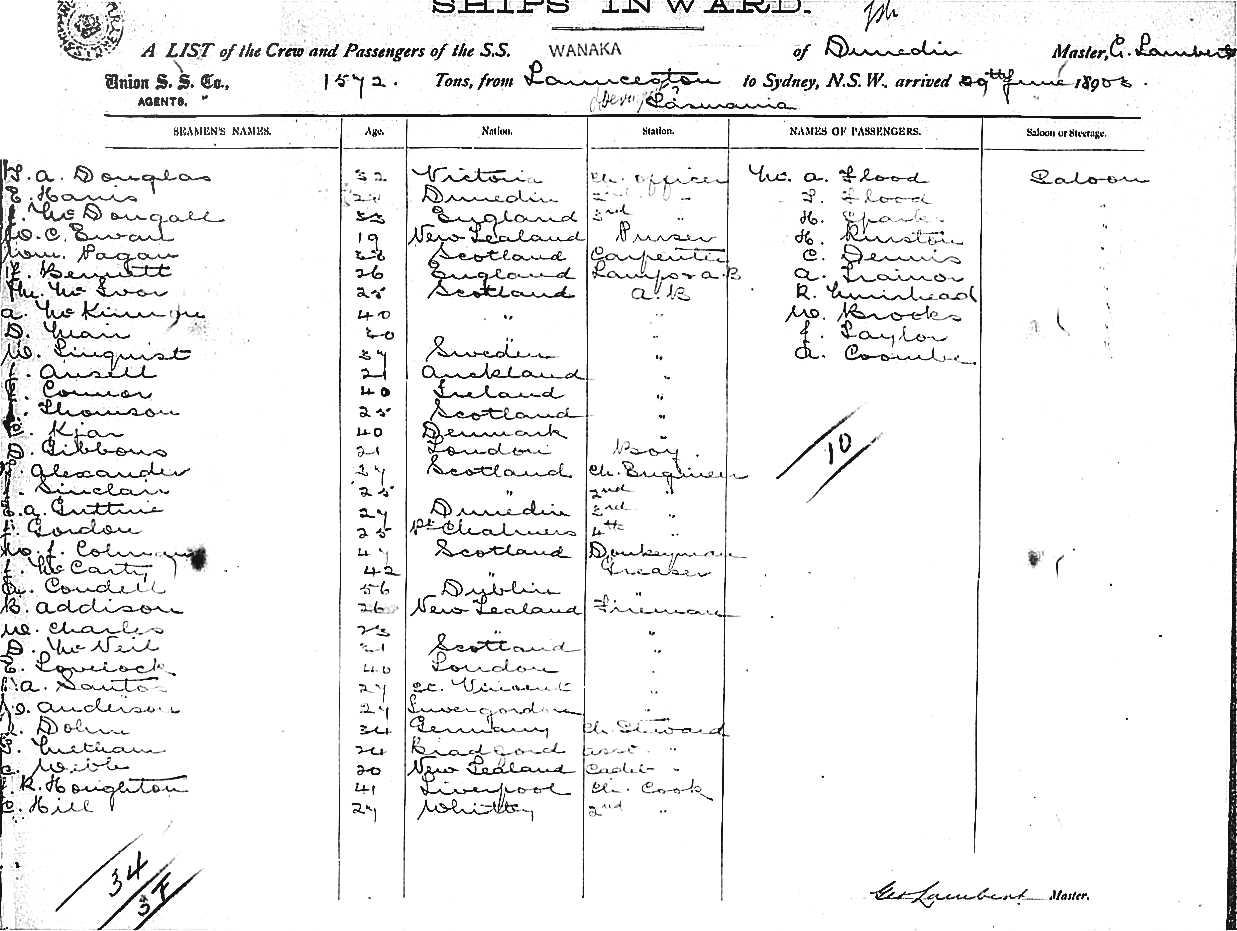 SHIPS INWARD.
A LIST of the Crew and Passengers of the S.S. WANAKA of Dunedin Master, G. Lambert
Union S. S. Co., 1572. Tons, from Launceston to Sydney, N.S.W. arrived 29th June 1903.
AGENTS, " Tasmania
SEAMEN'S NAMES. Age. Nation. Station. NAMES OF PASSENGERS. Saloon or Steerage.
a. Douglas 32 Victoria Ch. Officer Mr. a. Flood Saloon
E. Harris Dunedin 2nd " Flood "
McDougall 33 England 3rd " H. Sparks "
C. Ewan 19 New Zealand Purser H. Kinston "
Wm. Pagan 38 Scotland Carpenter C. Dennis "
Bennett 26 England Lamps & a.B a. Trainor "
Mc Ivor 25 Scotland a.B R. Muirhead "
a. McKinn 40 " " W. Brooks "
D. Mair 30 " J. Taylor "
W. Linquist 37 Sweden " A. Coombe "
Ansell 21 Auckland "
Connor 40 Ireland "
Thomson 25 Scotland "
Kjar 40 Denmark "
Gibbons 21 London Boy.
Alexander 27 Scotland Ch. Engineer
Sinclair 25 " 2nd "
a. Guthrie 27 Dunedin 3rd "
Gordon 25 Pt Chalmers 4th "
J. Colm 47 Scotland Donkeyman
McCarty 42 " Greaser
Condell 56 Dublin "
B. addison 26 New Zealand Fireman
W. Charles 23 " "
D. McNeil 21 Scotland "
Lovelock 40 London "
a. Santos 27 St. Vincent "
anderson 27 Invergordon "
Dohn 34 Germany Ch. Steward
24 Bradford asst. "
Wible 20 New Zealand Cadet "
R. Houghton 41 Liverpool Ch. Cook
C. Hill 27 Whitby 2nd "
10
34
Geo Lambert Master.